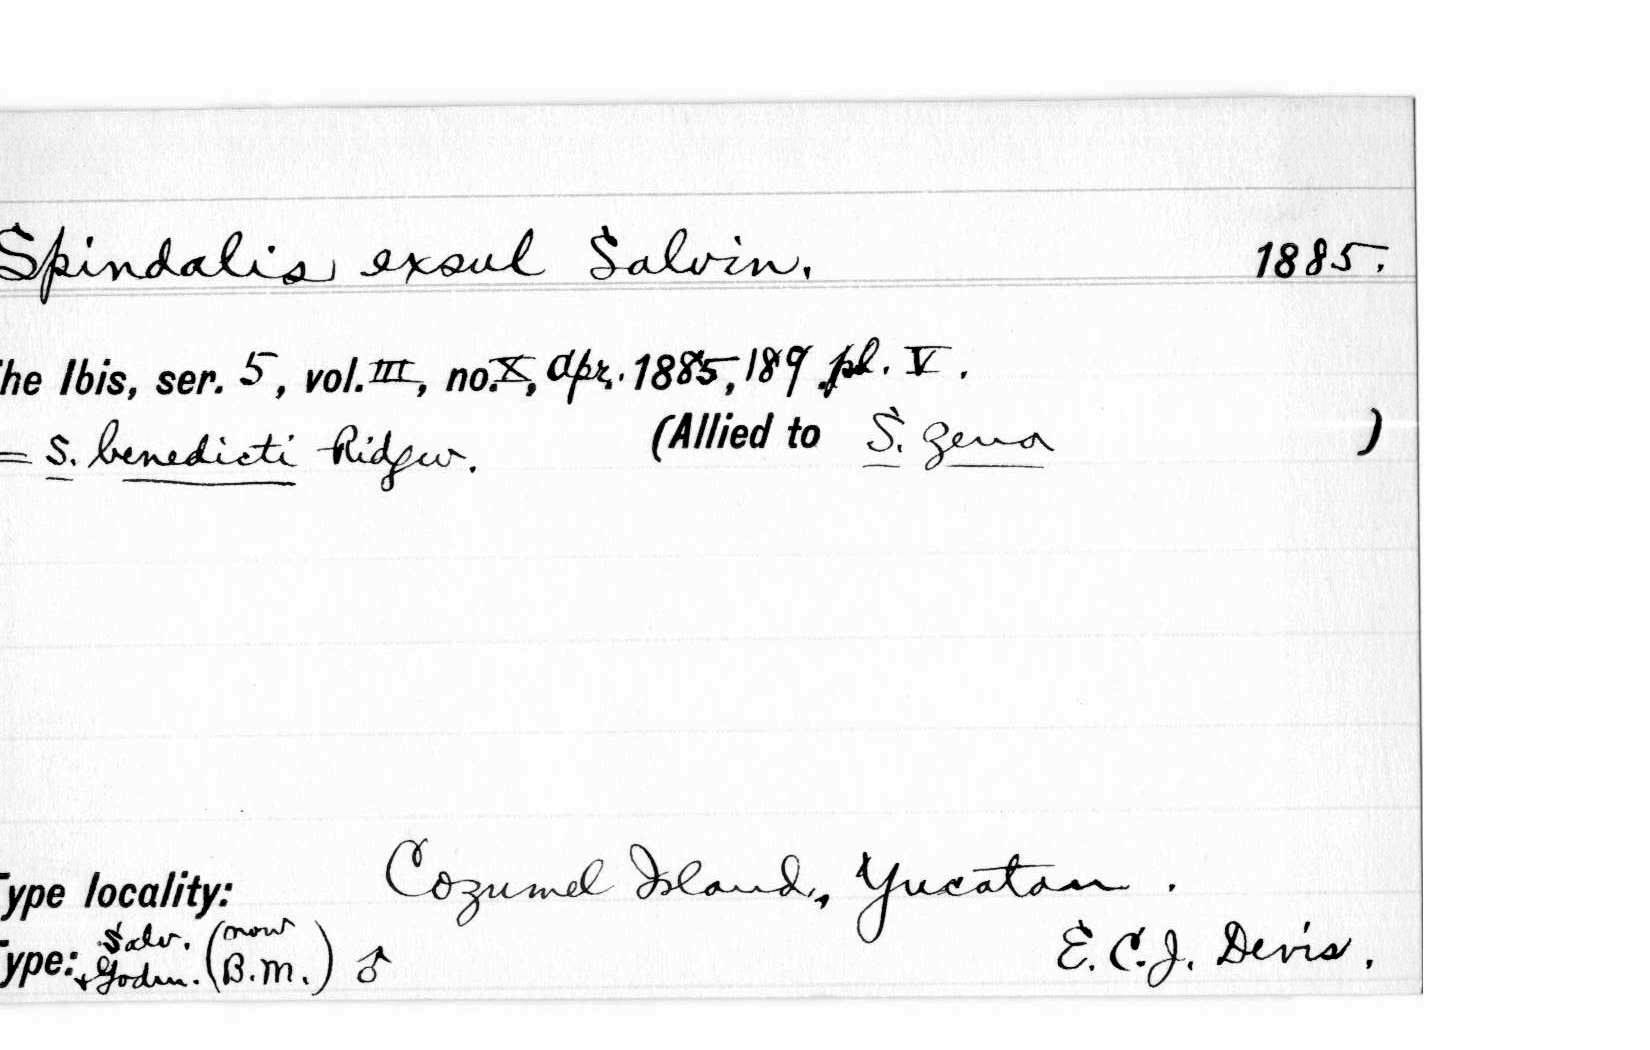 Spindalis exsul Salvin. 1885.
he Ibis, ser. 5, vol. III, no. X, Apr. 1885, 189, pl. V.
= S. benedicti Ridgw. (Allied to S. zena )
Type locality: Cozumel Island, Yucatan.
E.C.J. Devis.
Type: Salv. + Godm. (now B.M.) ♂